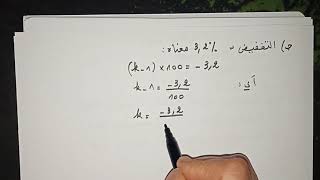 ج) التخفيض بـ 3,2% معناه:
(k-1) x 100 = -3,2
أي: k-1 = -3,2/100
k = -3,2